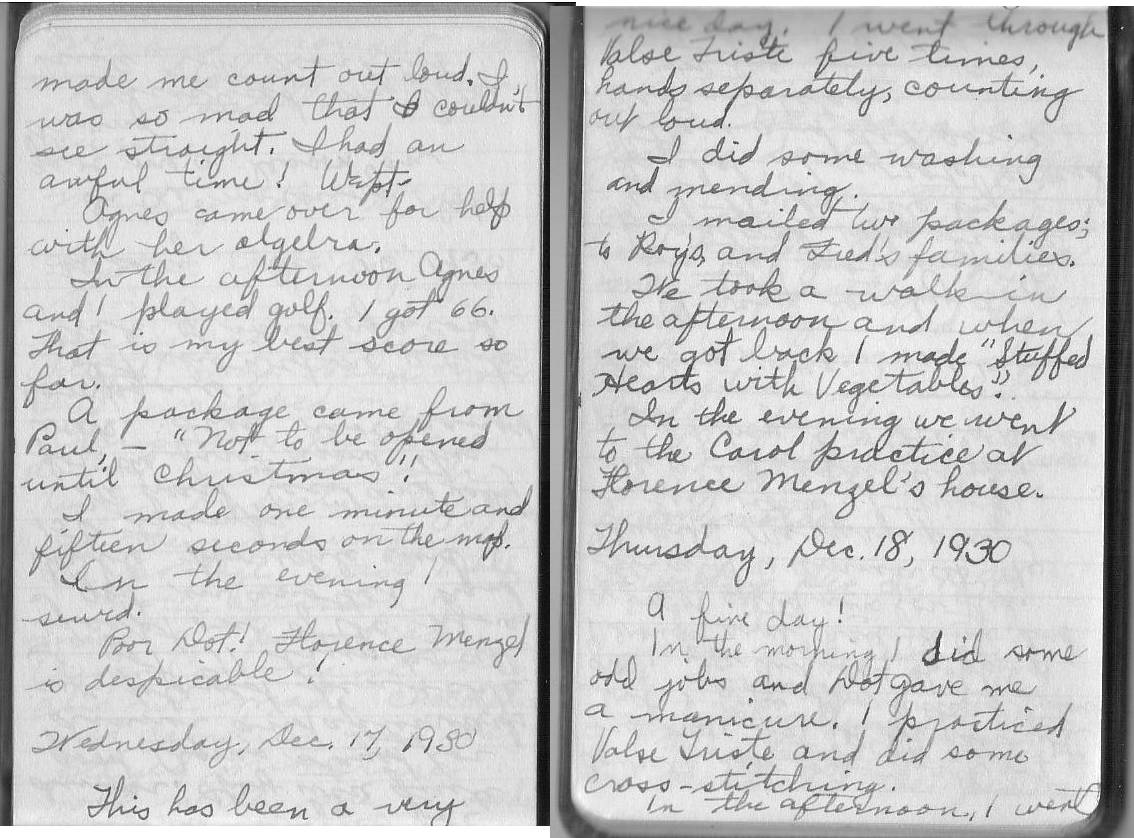 made me count out loud. I
was so mad that I couldn't
see straight. I had an
awful time! Wept.
Agnes came over for help
with her algebra.
In the afternoon Agnes
and I played golf. I got 66.
That is my best score so
far.
A package came from
Paul, – "Not to be opened
until Christmas"!
I made one minute and
fifteen seconds on the
In the evening I
sewed.
Poor Dot! Florence Menzel
is despicable!
Wednesday, Dec. 17, 1930
This has been a very
nice day. I went through
Valse Triste five times,
hands separately, counting
out loud.
I did some washing
and mending.
I mailed two packages;
to Roy's, and Fred's families.
We took a walk in
the afternoon and when
we got back I made "Stuffed
Hearts with Vegetables".
In the evening we went
to the Carol practice at
Florence Menzel's house.
Thursday, Dec. 18, 1930
A fine day!
In the morning I did some
odd jobs and Dot gave me
a manicure. I practiced
Valse Triste and did some
cross-stitching.
In the afternoon, I went